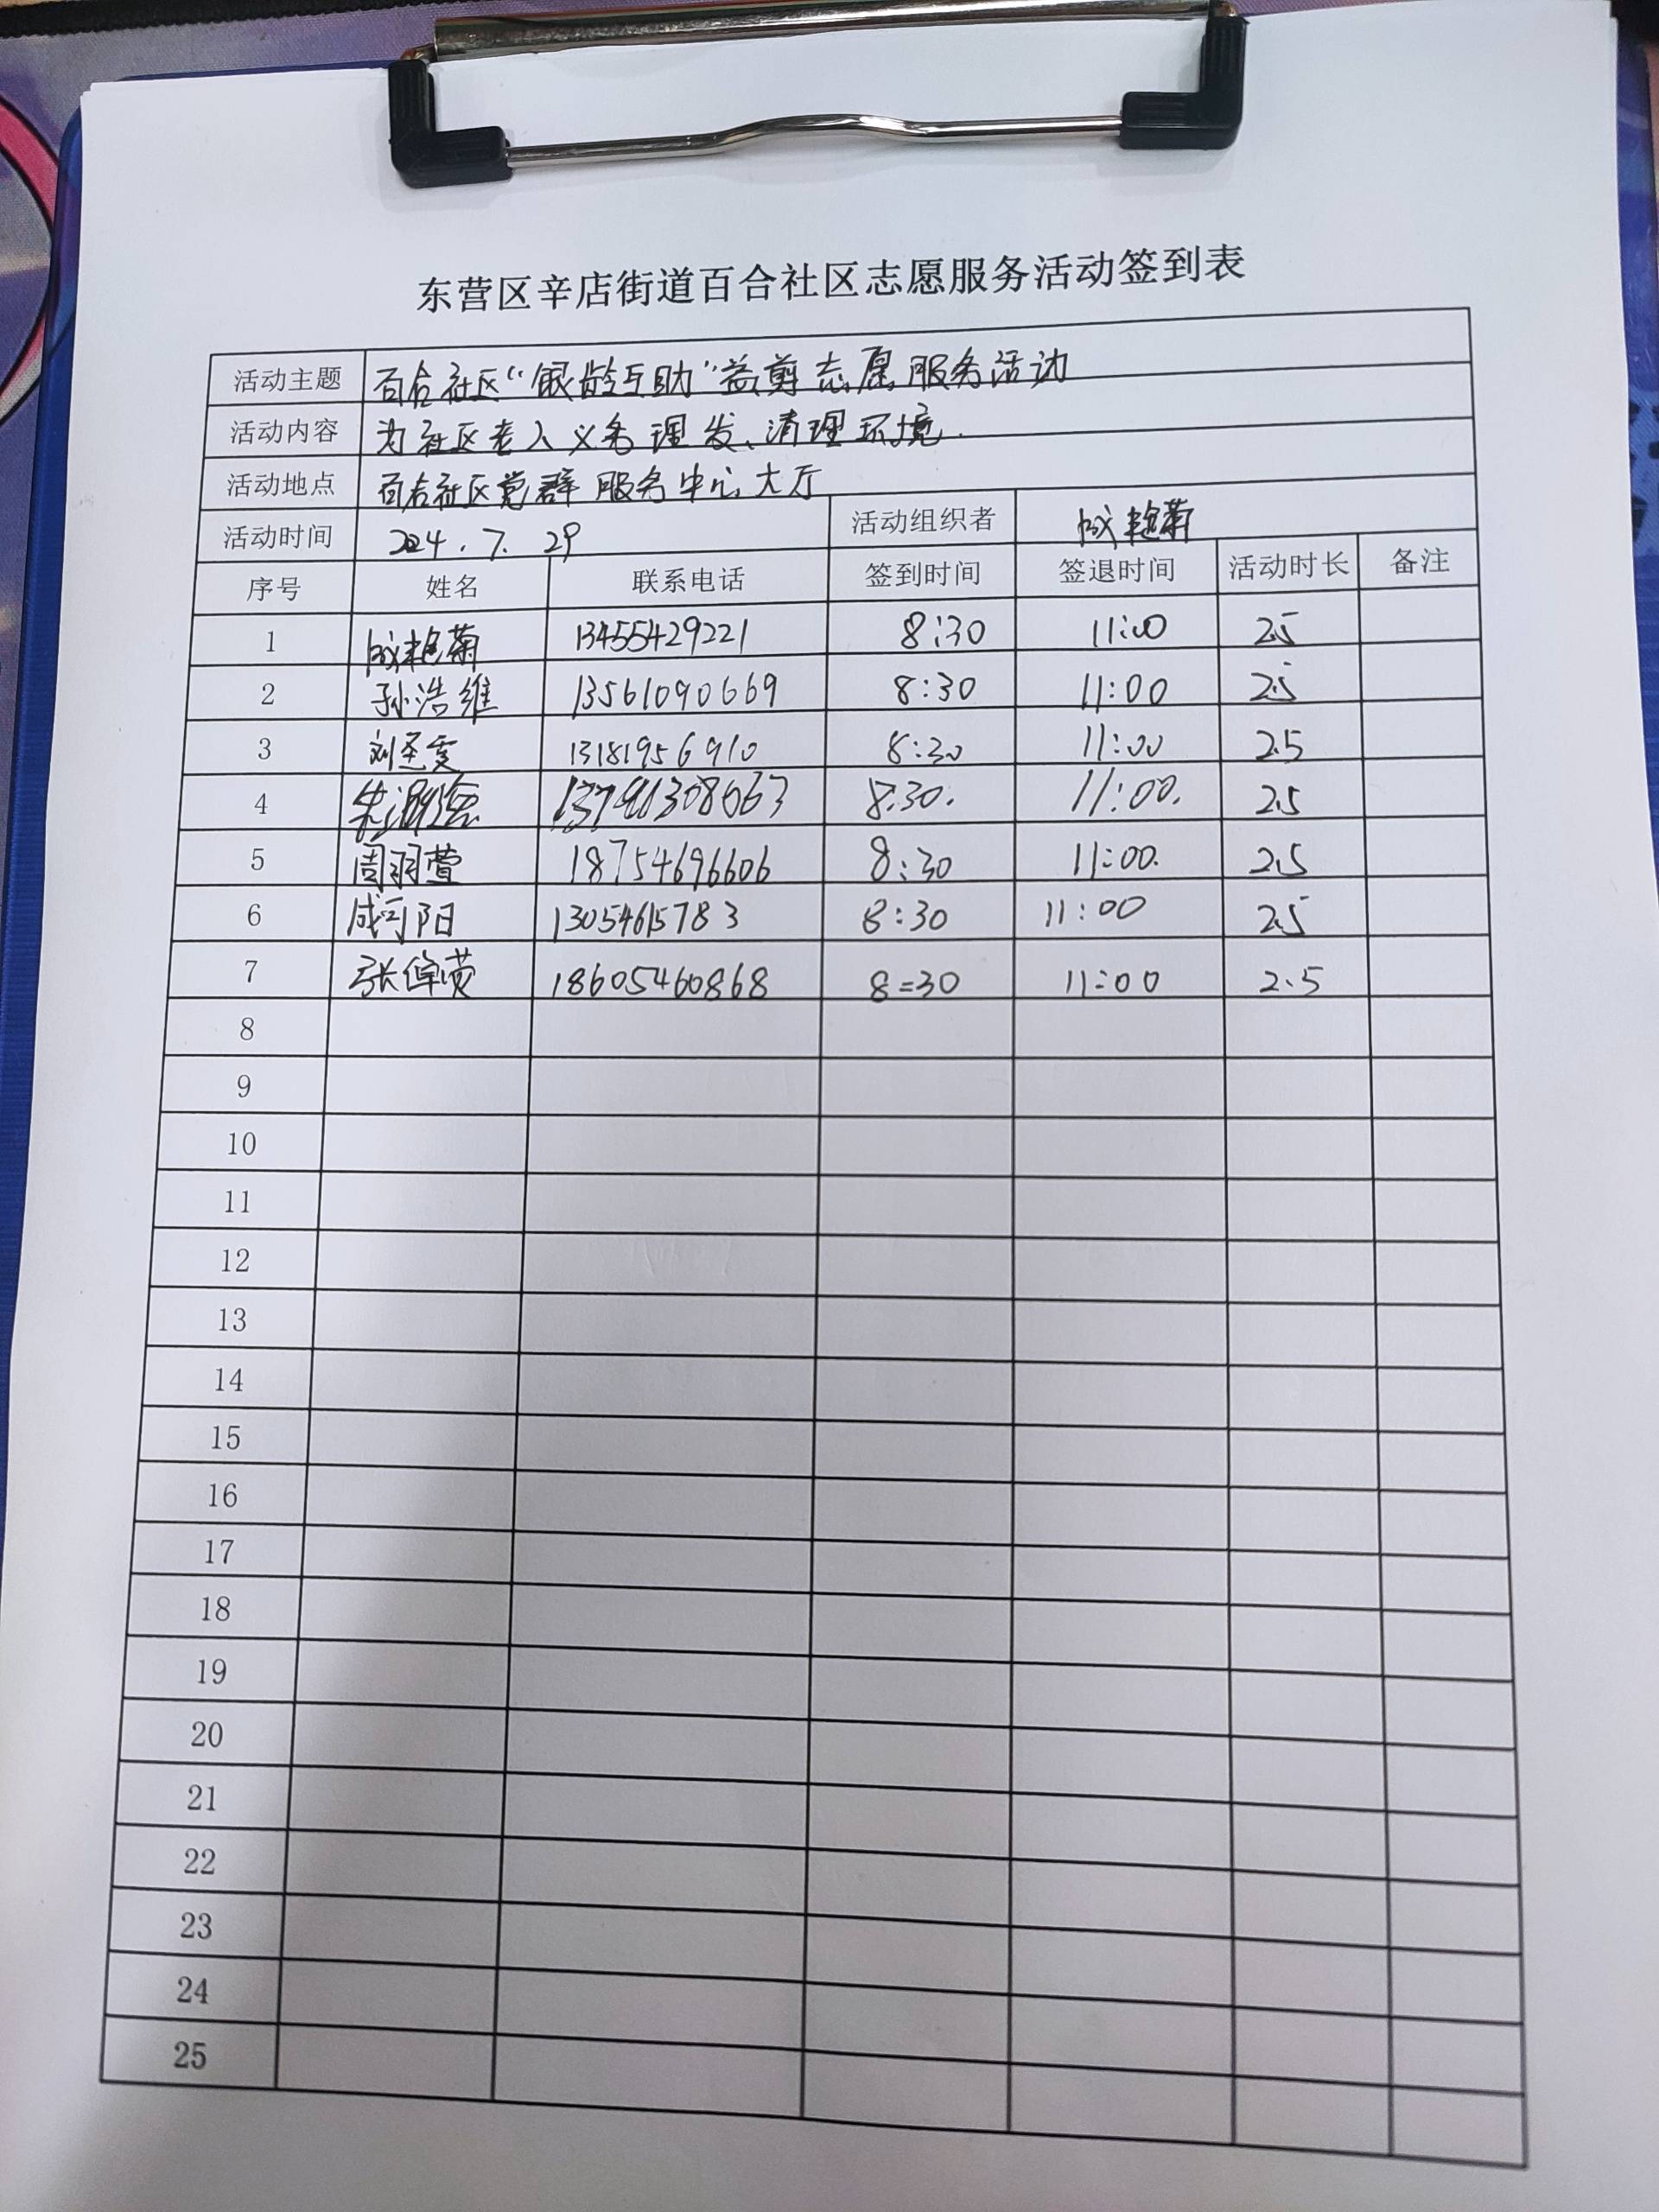 东营区辛店街道百合社区志愿服务活动签到表
活动主题 百合社区“银龄互助”益剪志愿服务活动
活动内容 为社区老人义务理发、清理环境.
活动地点 百合社区党群服务中心大厅
活动时间 2024.7.29 活动组织者 成艳菊
序号 姓名 联系电话 签到时间 签退时间 活动时长 备注
1 成艳菊 13455429221 8:30 11:00 2.5
2 孙浩维 13561090669 8:30 11:00 2.5
3 刘圣雯 13181956910 8:30 11:00 2.5
4 8.30. 11:00. 2.5
5 周羽萱 18754696606 8:30 11:00. 2.5
6 成可阳 13054615783 8:30 11:00 2.5
7 18605460868 8=30 11:00 2.5
8
9
10
11
12
13
14
15
16
17
18
19
20
21
22
23
24
25